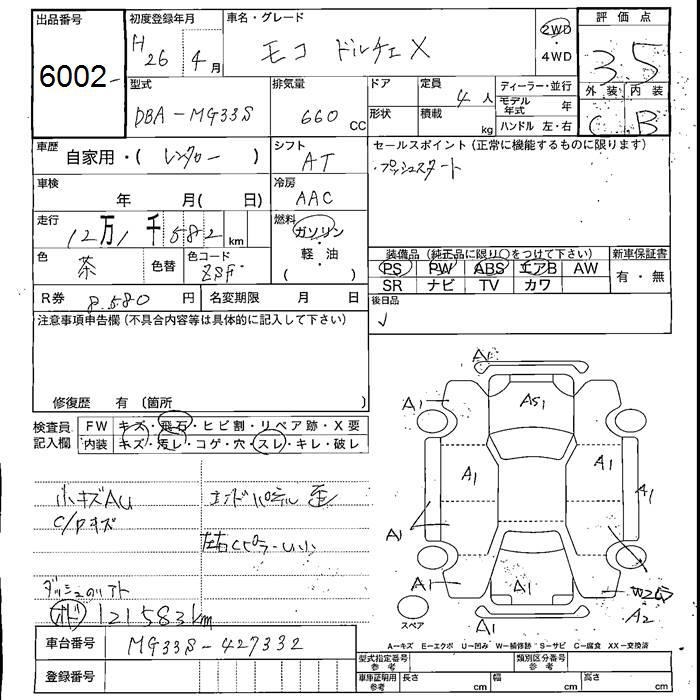 出品番号 初度登録年月 車名・グレード 評価点
6002 H26年4月 モコ ドルチェX 2WD・4WD 3.5
外装 内装
型式 排気量 ドア 定員 ディーラー・並行
DBA-MG33S 660 CC 4人 モデル年式 年
形状 積載 kg ハンドル 左・右 C B
車歴 自家用・(レンタカー) シフト AT
セールスポイント(正常に機能するものに限ります)
プッシュスタート
車検 年 月(日) 冷房 AAC
走行 12万1千582km 燃料 ガソリン・軽・油( )
色 茶 色替 色コード ZSF
装備品(純正品に限り○をつけて下さい) 新車保証書
PS PW ABS エアB AW 有・無
SR ナビ TV カワ
R券 8,580円 名変期限 月 日
後日品
注意事項申告欄(不具合内容等は具体的に記入して下さい)
修復歴 有(箇所 )
検査員記入欄 FW キズ・飛石・ヒビ割・リペア跡・X要
内装 キズ・汚レ・コゲ・穴・スレ・キレ・破レ
小キズAu エンドパネル歪
C/Pキズ
左右Cピラー
オド 121583km
車台番号 MG33S-427332
登録番号
A1
A1 AS1 A1
A1 A1 A1
A1
A1 A1 W2
A2
スペア A1
A-キズ E-エクボ U-凹み W-補修跡 S-サビ C-腐食 XX-交換済
型式指定番号参考 類別区分番号参考
車庫証明用参考 長さ cm 幅 cm 高さ cm